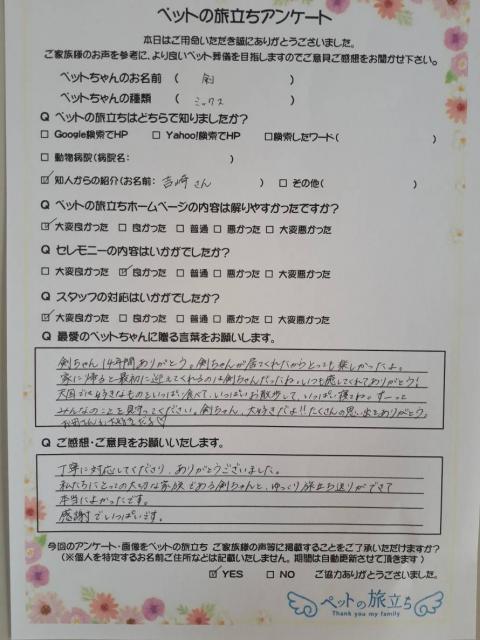 ペットの旅立ちアンケート
本日はご用命いただき誠にありがとうございました。
ご家族様のお声を参考に、より良いペット葬儀を目指しますのでご意見ご感想をお聞かせ下さい。
ペットちゃんのお名前 ( 剣 )
ペットちゃんの種類 ( ミックス )
Q ペットの旅立ちはどちらで知りましたか?
□ Google検索でHP □ Yahoo!検索でHP □検索したワード( )
□ 動物病院(病院名: )
☑ 知人からの紹介(お名前: 吉崎さん ) □ その他( )
Q ペットの旅立ちホームページの内容は解りやすかったですか?
☑ 大変良かった □ 良かった □ 普通 □ 悪かった □ 大変悪かった
Q セレモニーの内容はいかがでしたか?
□ 大変良かった ☑ 良かった □ 普通 □ 悪かった □ 大変悪かった
Q スタッフの対応はいかがでしたか?
☑ 大変良かった □ 良かった □ 普通 □ 悪かった □ 大変悪かった
Q 最愛のペットちゃんに贈る言葉をお願いします。
剣ちゃん 14年間ありがとう。剣ちゃんが居てくれたからとっても楽しかったよ。
家に帰ると最初に迎えてくれるのは剣ちゃんだったね。いつも癒してくれてありがとう!
天国では好きなものといっぱい食べて、いっぱいお散歩して、いっぱい寝てね。ずーっと
みんなのことを見守ってください。剣ちゃん、大好きだよ!!たくさんの思い出をありがとう。
Q ご感想・ご意見をお願いいたします。
丁寧に対応してくださり、ありがとうございました。
私たちにとっての大切な家族である剣ちゃんと、ゆっくり旅立ち送りができて
本当によかったです。
感謝でいっぱいです。
今回のアンケート・画像をペットの旅立ち ご家族様の声等に掲載することをご了承いただけますか?
(※個人を特定するお名前ご住所などは記載いたしません。期間は自動更新させて頂きます)
☑ YES □ NO ご協力ありがとうございました。
ペットの旅立ち
Thank you my family